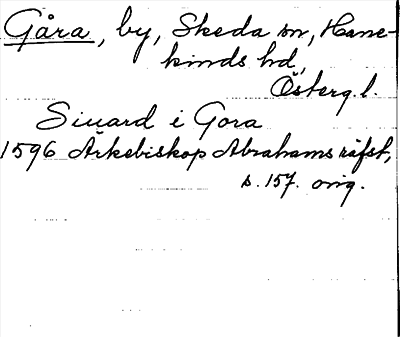 Gåra, by, Skeda sn, Hane-
kinds hd,
Österg.l.
Siuard i Gora
1596 Ärkebiskop Abrahams räfst,
s. 157. orig.